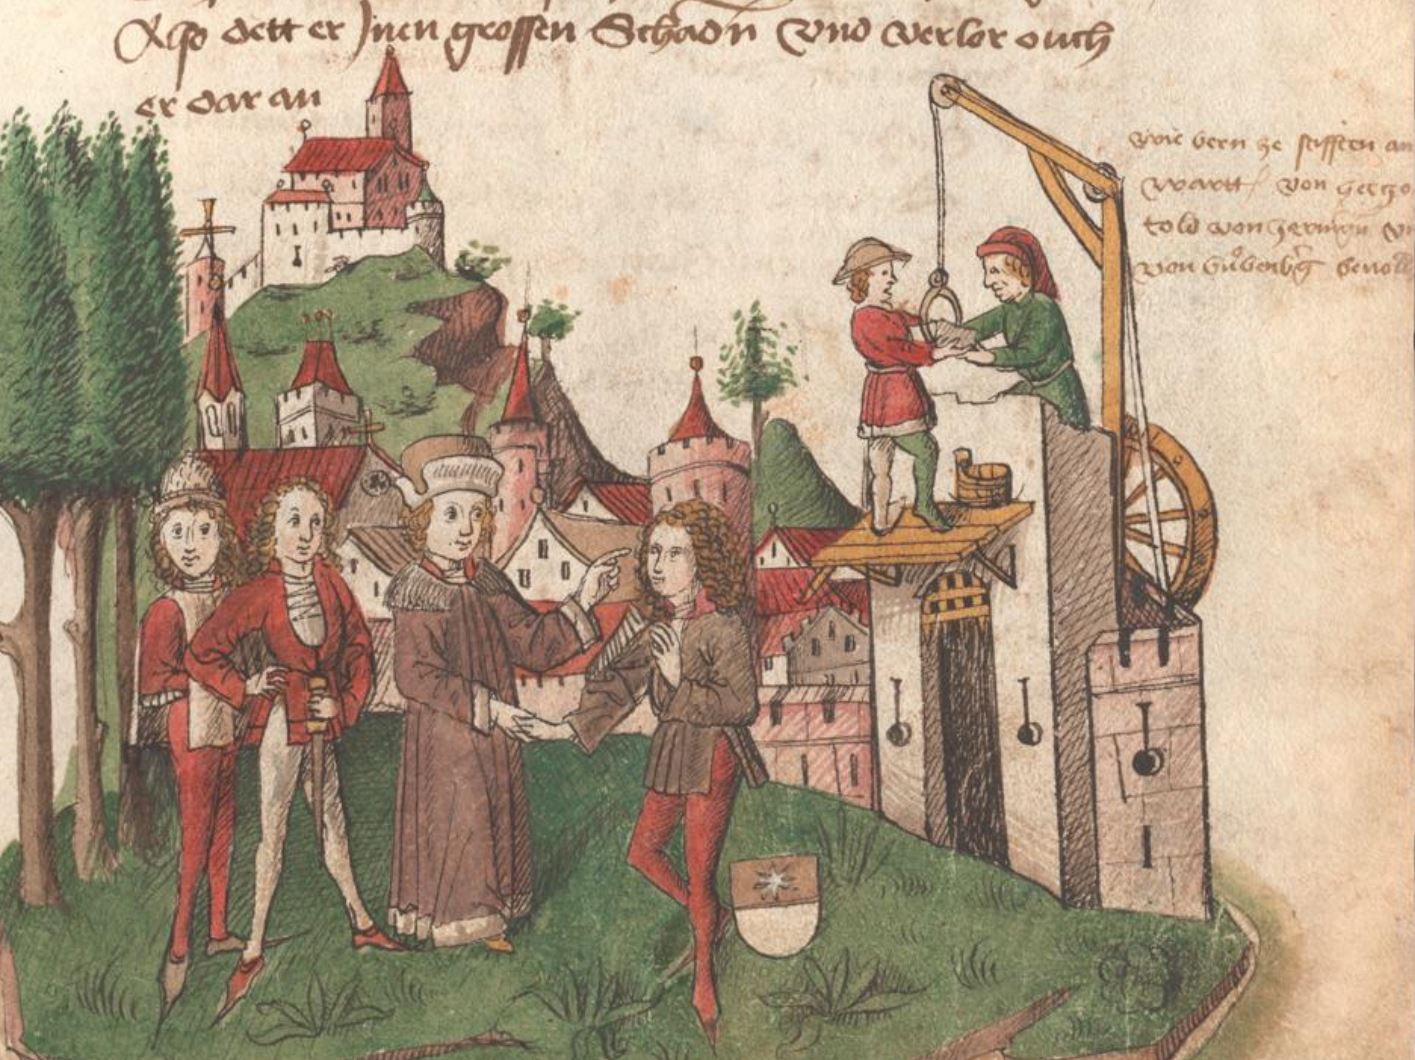 Also dett er Inen grossen Schadn vnd verlor ouch
er dar an
wie bern ze stifften an
wartt von hertzo
told von zeringen v
von bůbenbg bevol